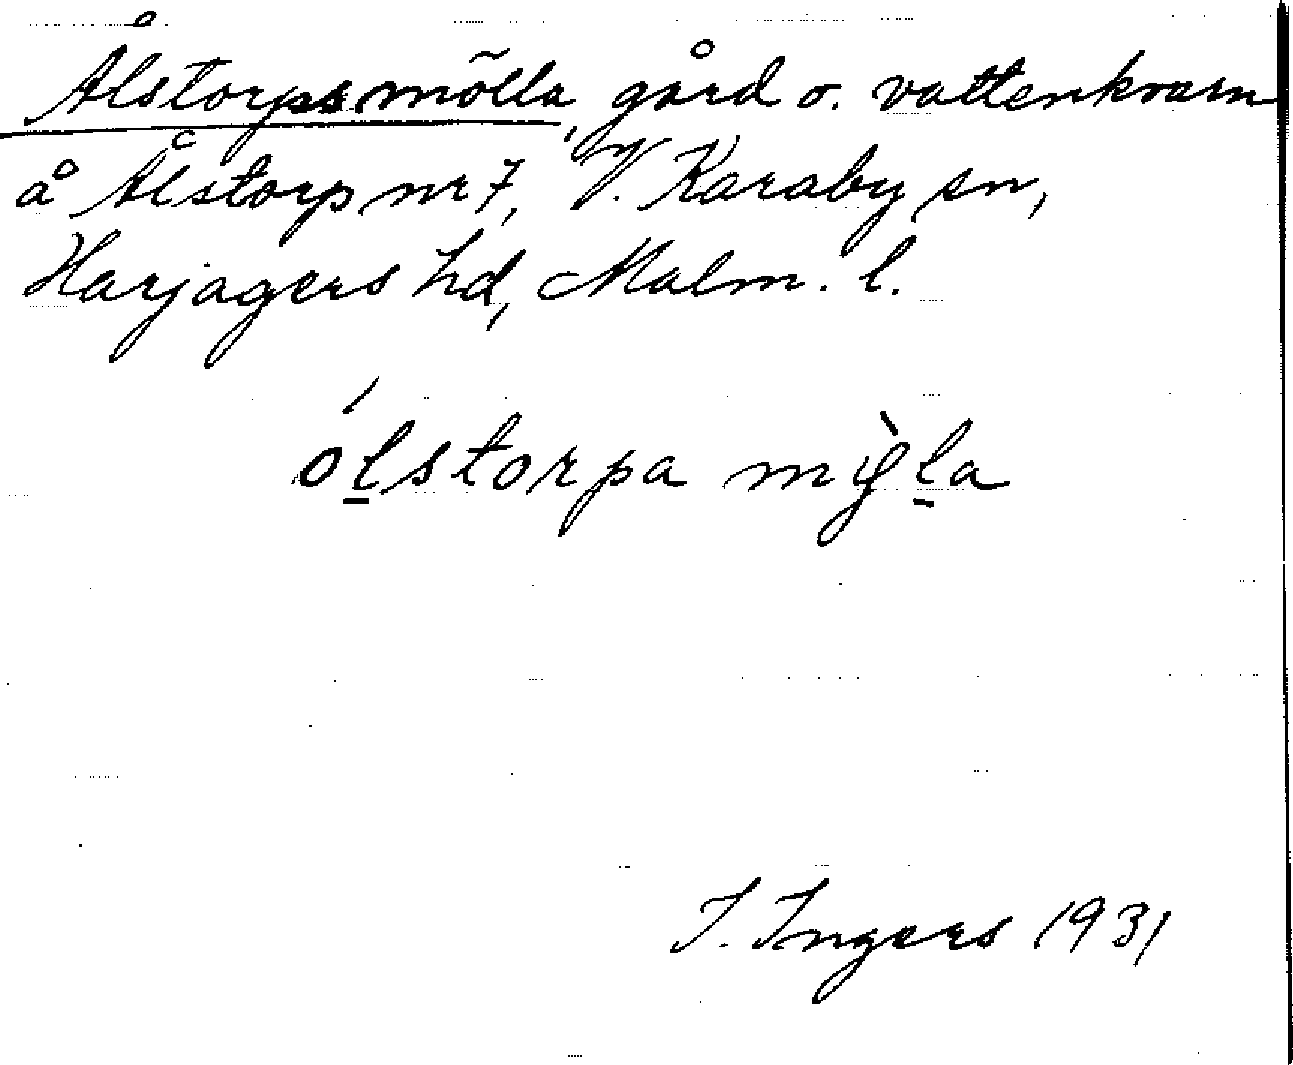 Ålstorpsmölla, gård o. vattenkvarn
å Ålstorp nr 7, V. Karaby sn,
Harjagers hd, Malm. l.
ólstorpa mỳla
I. Ingers 1931